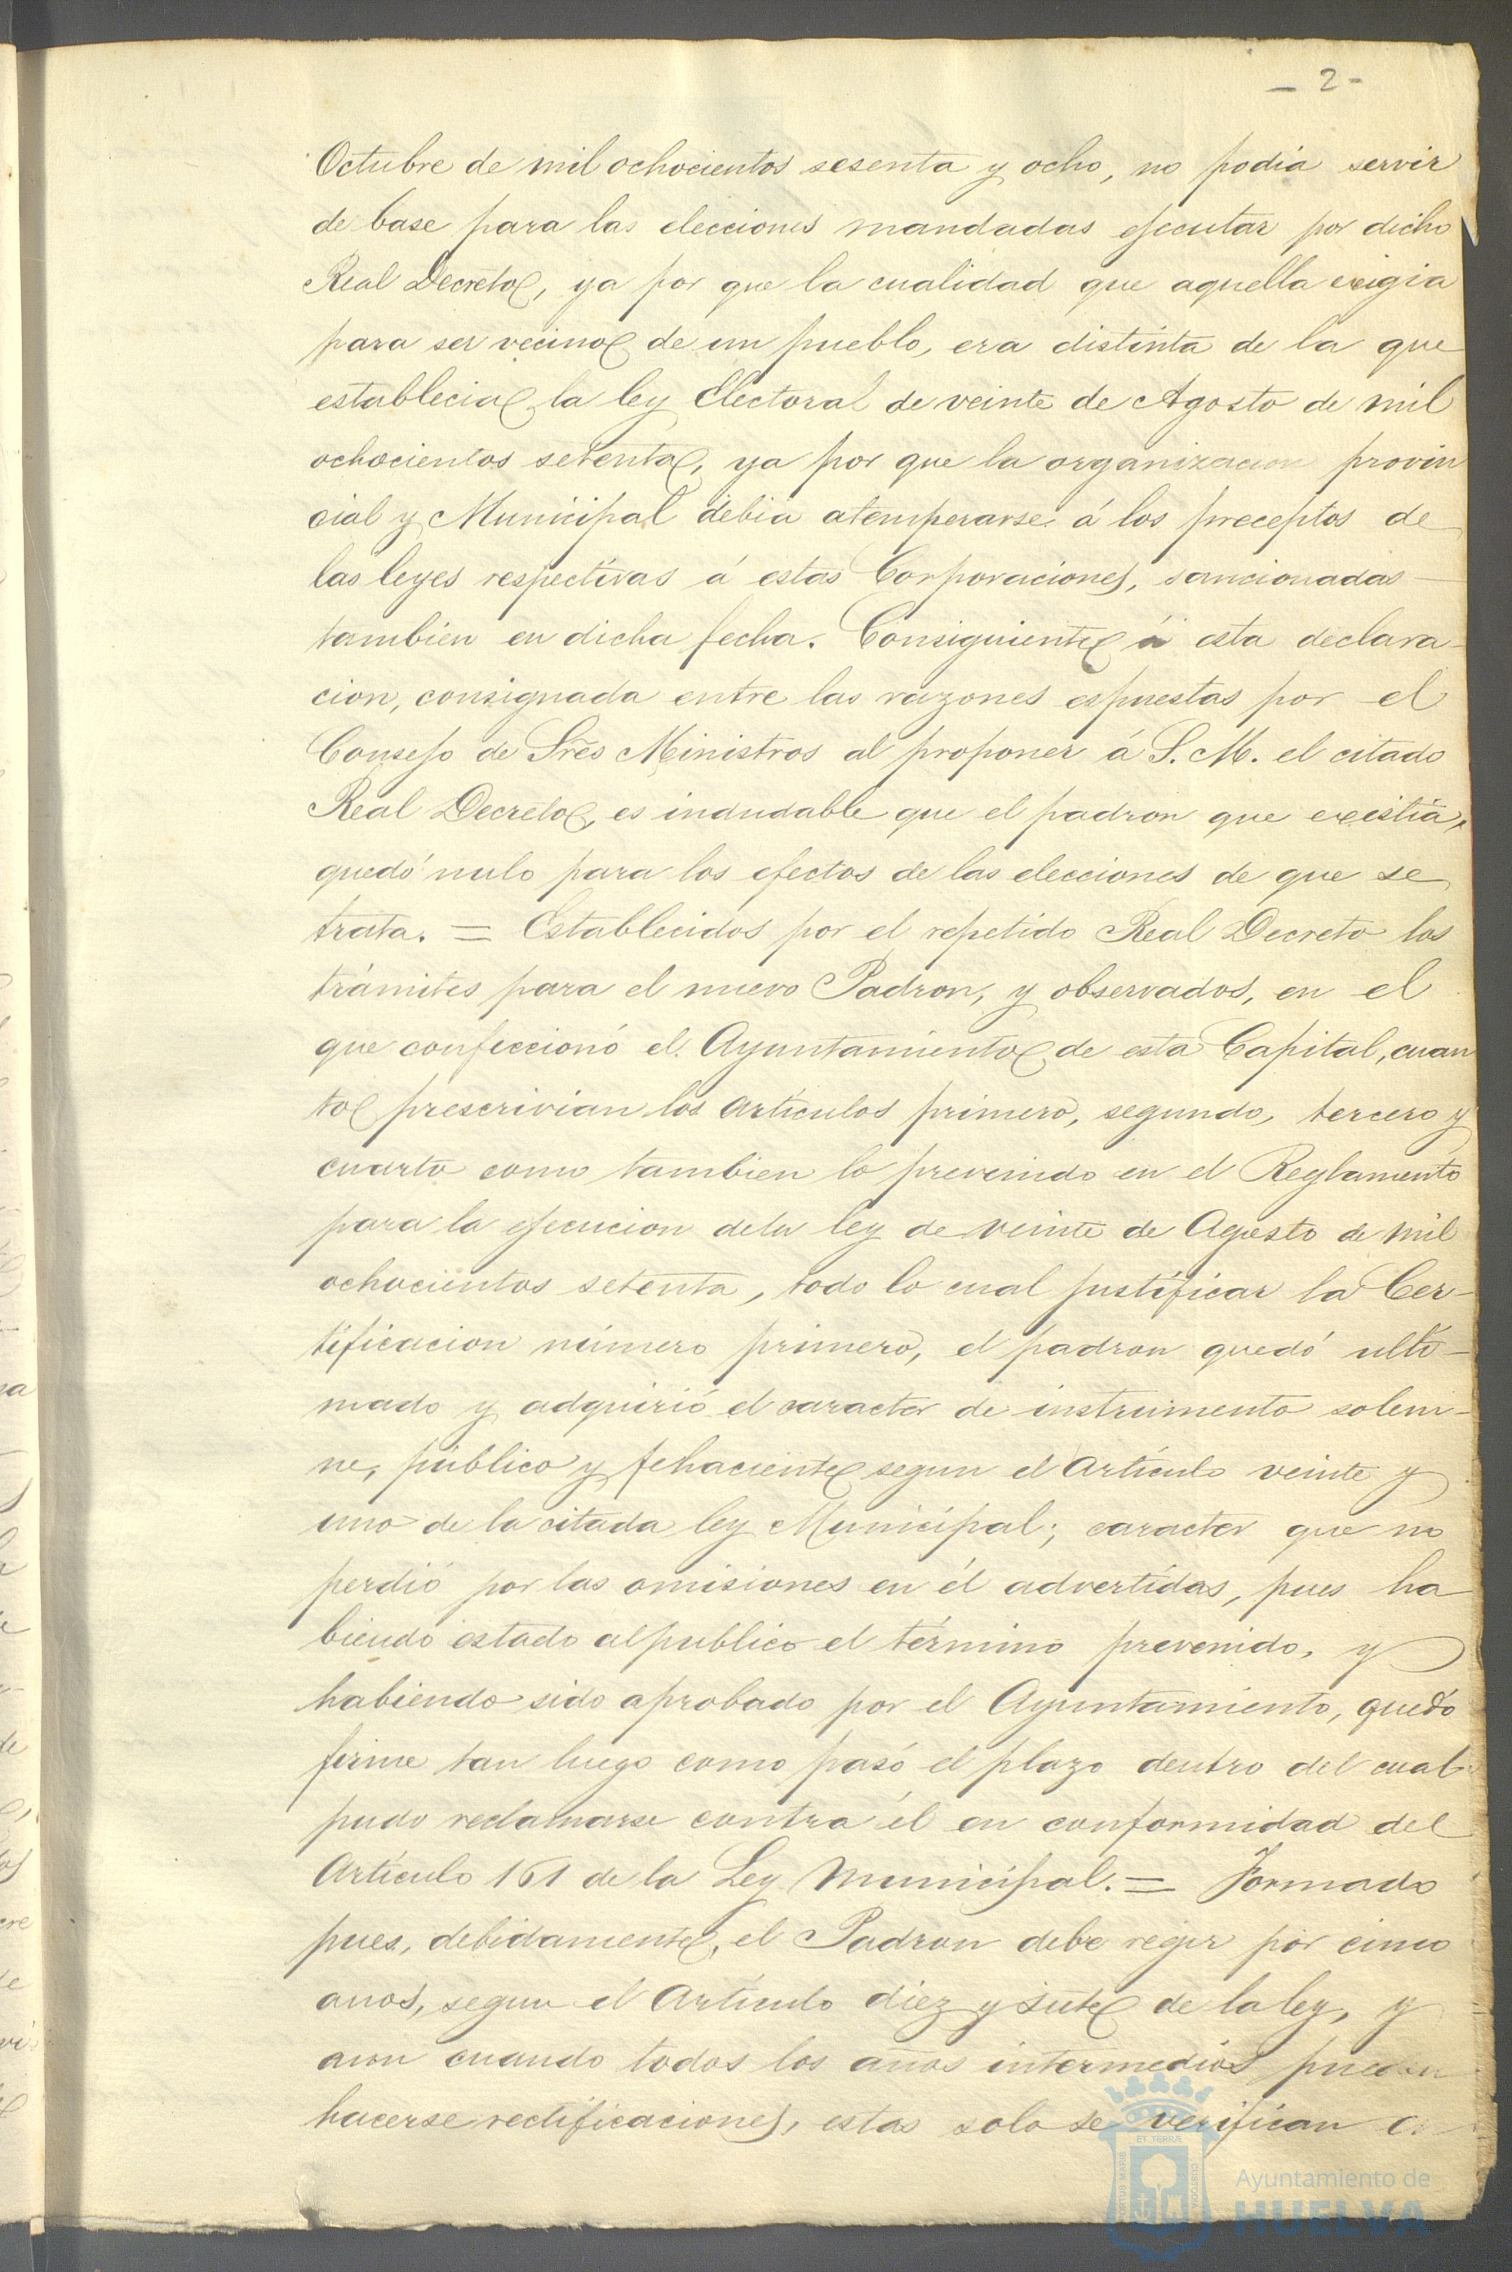 - 2 -
Octubre de mil ochocientos sesenta y ocho, no podia servir
de base para las elecciones mandadas ejecutar por dicho
Real Decreto, ya por que la cualidad que aquella exigia
para ser vecino de un pueblo, era distinta de la que
establecia la ley Electoral de veinte de Agosto de mil
ochocientos setenta, ya por que la organizacion provin
cial y Municipal debia atemperarse á los preceptos de
las leyes respectivas á estas Corporaciones, sancionadas
tambien en dicha fecha. Consiguiente á esta declara-
cion, consignada entre las razones espuestas por el
Consejo de Sres Ministros al proponer á S. M. el citado
Real Decreto, es indudable que el padron que existia,
quedó nulo para los efectos de las elecciones de que se
trata. = Establecidos por el repetido Real Decreto los
trámites para el nuevo Padron, y observados, en el
que confeccionó el Ayuntamiento de esta Capital, cuan
to prescrivian los artículos primero, segundo, tercero y
cuarto como tambien lo prevenido en el Reglamento
para la ejecucion dela ley de veinte de Agosto de mil
ochocientos setenta, todo lo cual justificar la Cer-
tificacion número primero, el padron quedó ulti-
mado y adquirió el caracter de instrumento solem-
ne, público y fehaciente segun el artículo veinte y
uno de la citada ley Municipal; caracter que no
perdió por las omisiones en él advertidas, pues ha
biendo estado al publico el término prevenido, y
habiendo sido aprobado por el Ayuntamiento, quedó
firme tan luego como pasó el plazo dentro del cual
pudo reclamarse contra él en conformidad del
Artículo 161 de la Ley Municipal. = Formado
pues, debidamente, el Padron debe regir por cinco
anos, segun el Artículo diez y siete de la ley, y
aun cuando todos los años intermedios pueden
hacerse rectificaciones, estas solo se verifican
Ayuntamiento de
HUELVA